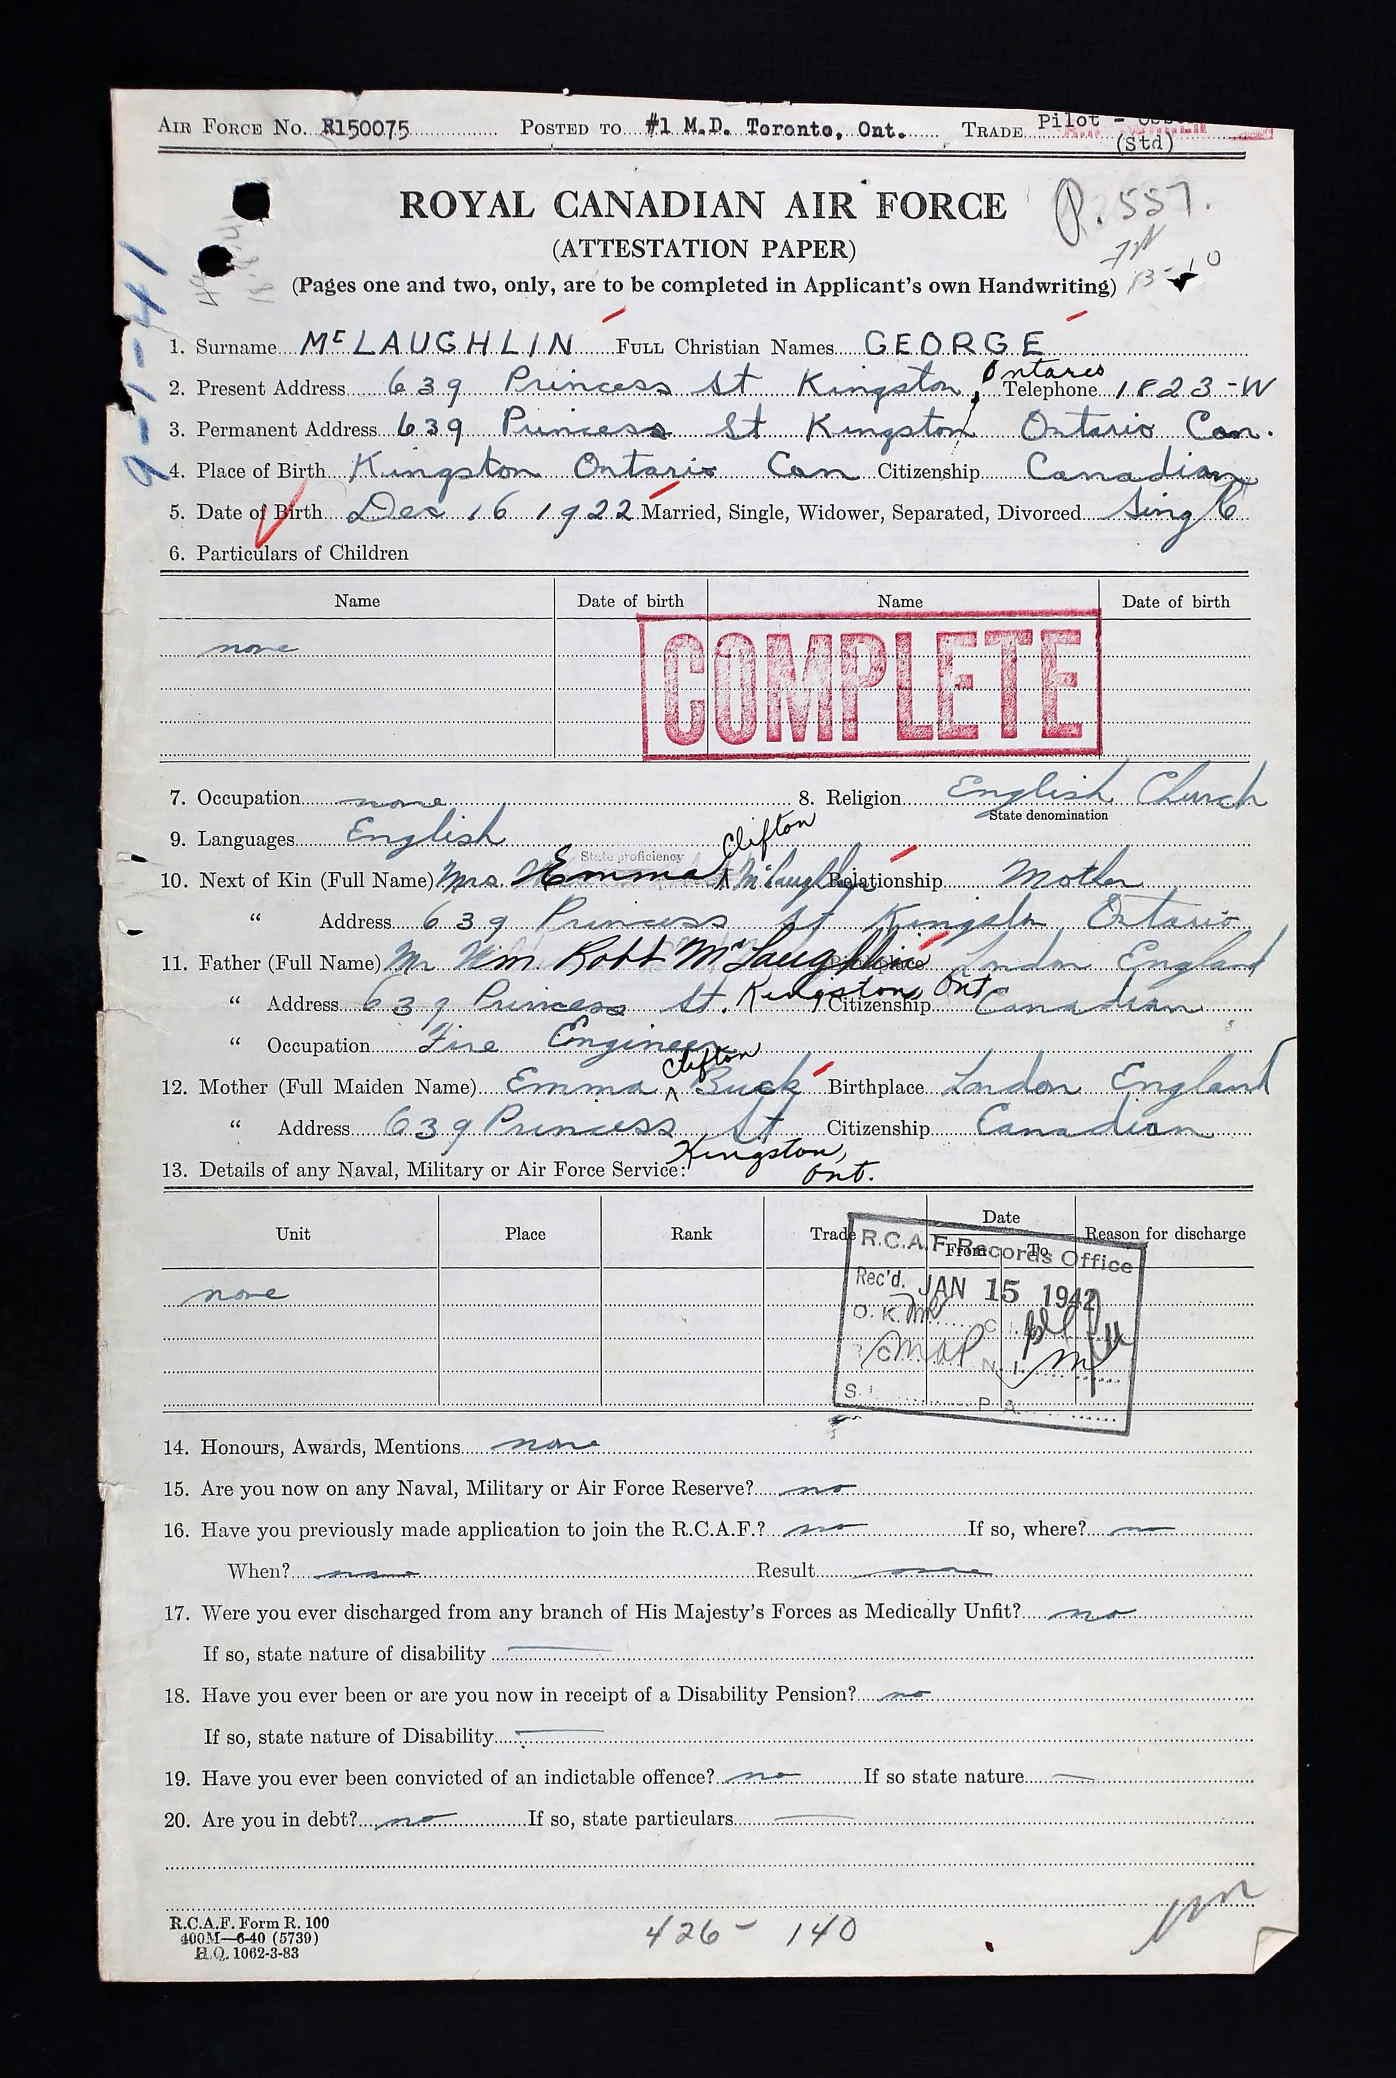 AIR FORCE No. R150075 POSTED TO #1 M.D. Toronto, Ont. TRADE Pilot -
(Std)
ROYAL CANADIAN AIR FORCE
P. 557.
(ATTESTATION PAPER)
(Pages one and two, only, are to be completed in Applicant's own Handwriting)
9-1-41
1. Surname McLAUGHLIN FULL Christian Names GEORGE
2. Present Address 639 Princess St Kingston, Ontario Telephone 1823-W
3. Permanent Address 639 Princess St Kingston Ontario Can.
4. Place of Birth Kingston Ontario Can Citizenship Canadian
5. Date of Birth Dec 16 1922 Married, Single, Widower, Separated, Divorced Single
6. Particulars of Children
Name Date of birth Name Date of birth
none
COMPLETE
7. Occupation none 8. Religion English Church
State denomination
9. Languages English
State proficiency
Clifton
10. Next of Kin (Full Name) Mrs. Emma McLaughlin Relationship Mother
" Address 639 Princess St Kingston Ontario
11. Father (Full Name) Mr Wm. Robt McLaughlin Birthplace London England
" Address 639 Princess St. Kingston, Ont Citizenship Canadian
" Occupation Fire Engineer
Clifton
12. Mother (Full Maiden Name) Emma Buck Birthplace London England
" Address 639 Princess St Citizenship Canadian
Kingston,
Ont.
13. Details of any Naval, Military or Air Force Service:
Unit Place Rank Trade Date From To Reason for discharge
none
R.C.A.F. Records Office
Rec'd. JAN 15 1942
O.K.
S.
P.A.
14. Honours, Awards, Mentions none
15. Are you now on any Naval, Military or Air Force Reserve? no
16. Have you previously made application to join the R.C.A.F.? no If so, where? no
When? none Result none
17. Were you ever discharged from any branch of His Majesty's Forces as Medically Unfit? no
If so, state nature of disability
18. Have you ever been or are you now in receipt of a Disability Pension? no
If so, state nature of Disability
19. Have you ever been convicted of an indictable offence? no If so state nature
20. Are you in debt? no If so, state particulars
R.C.A.F. Form R. 100
400M—6-40 (5739)
H.Q. 1062-3-83
426- 140